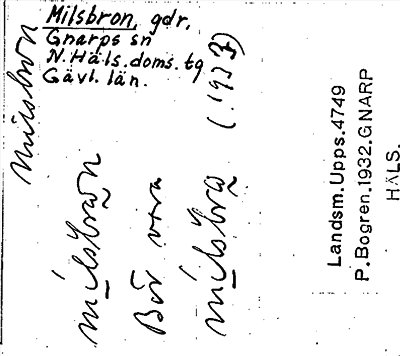 Milsbron, gdr,
Gnarps sn
N.Häls.doms.tg
Gävl. län.
Milsbron
mílsbrωn
Bör vara
mílsbrω (1923)
Landsm.Upps.4749
P.Bogren.1932.GNARP
HÄLS.